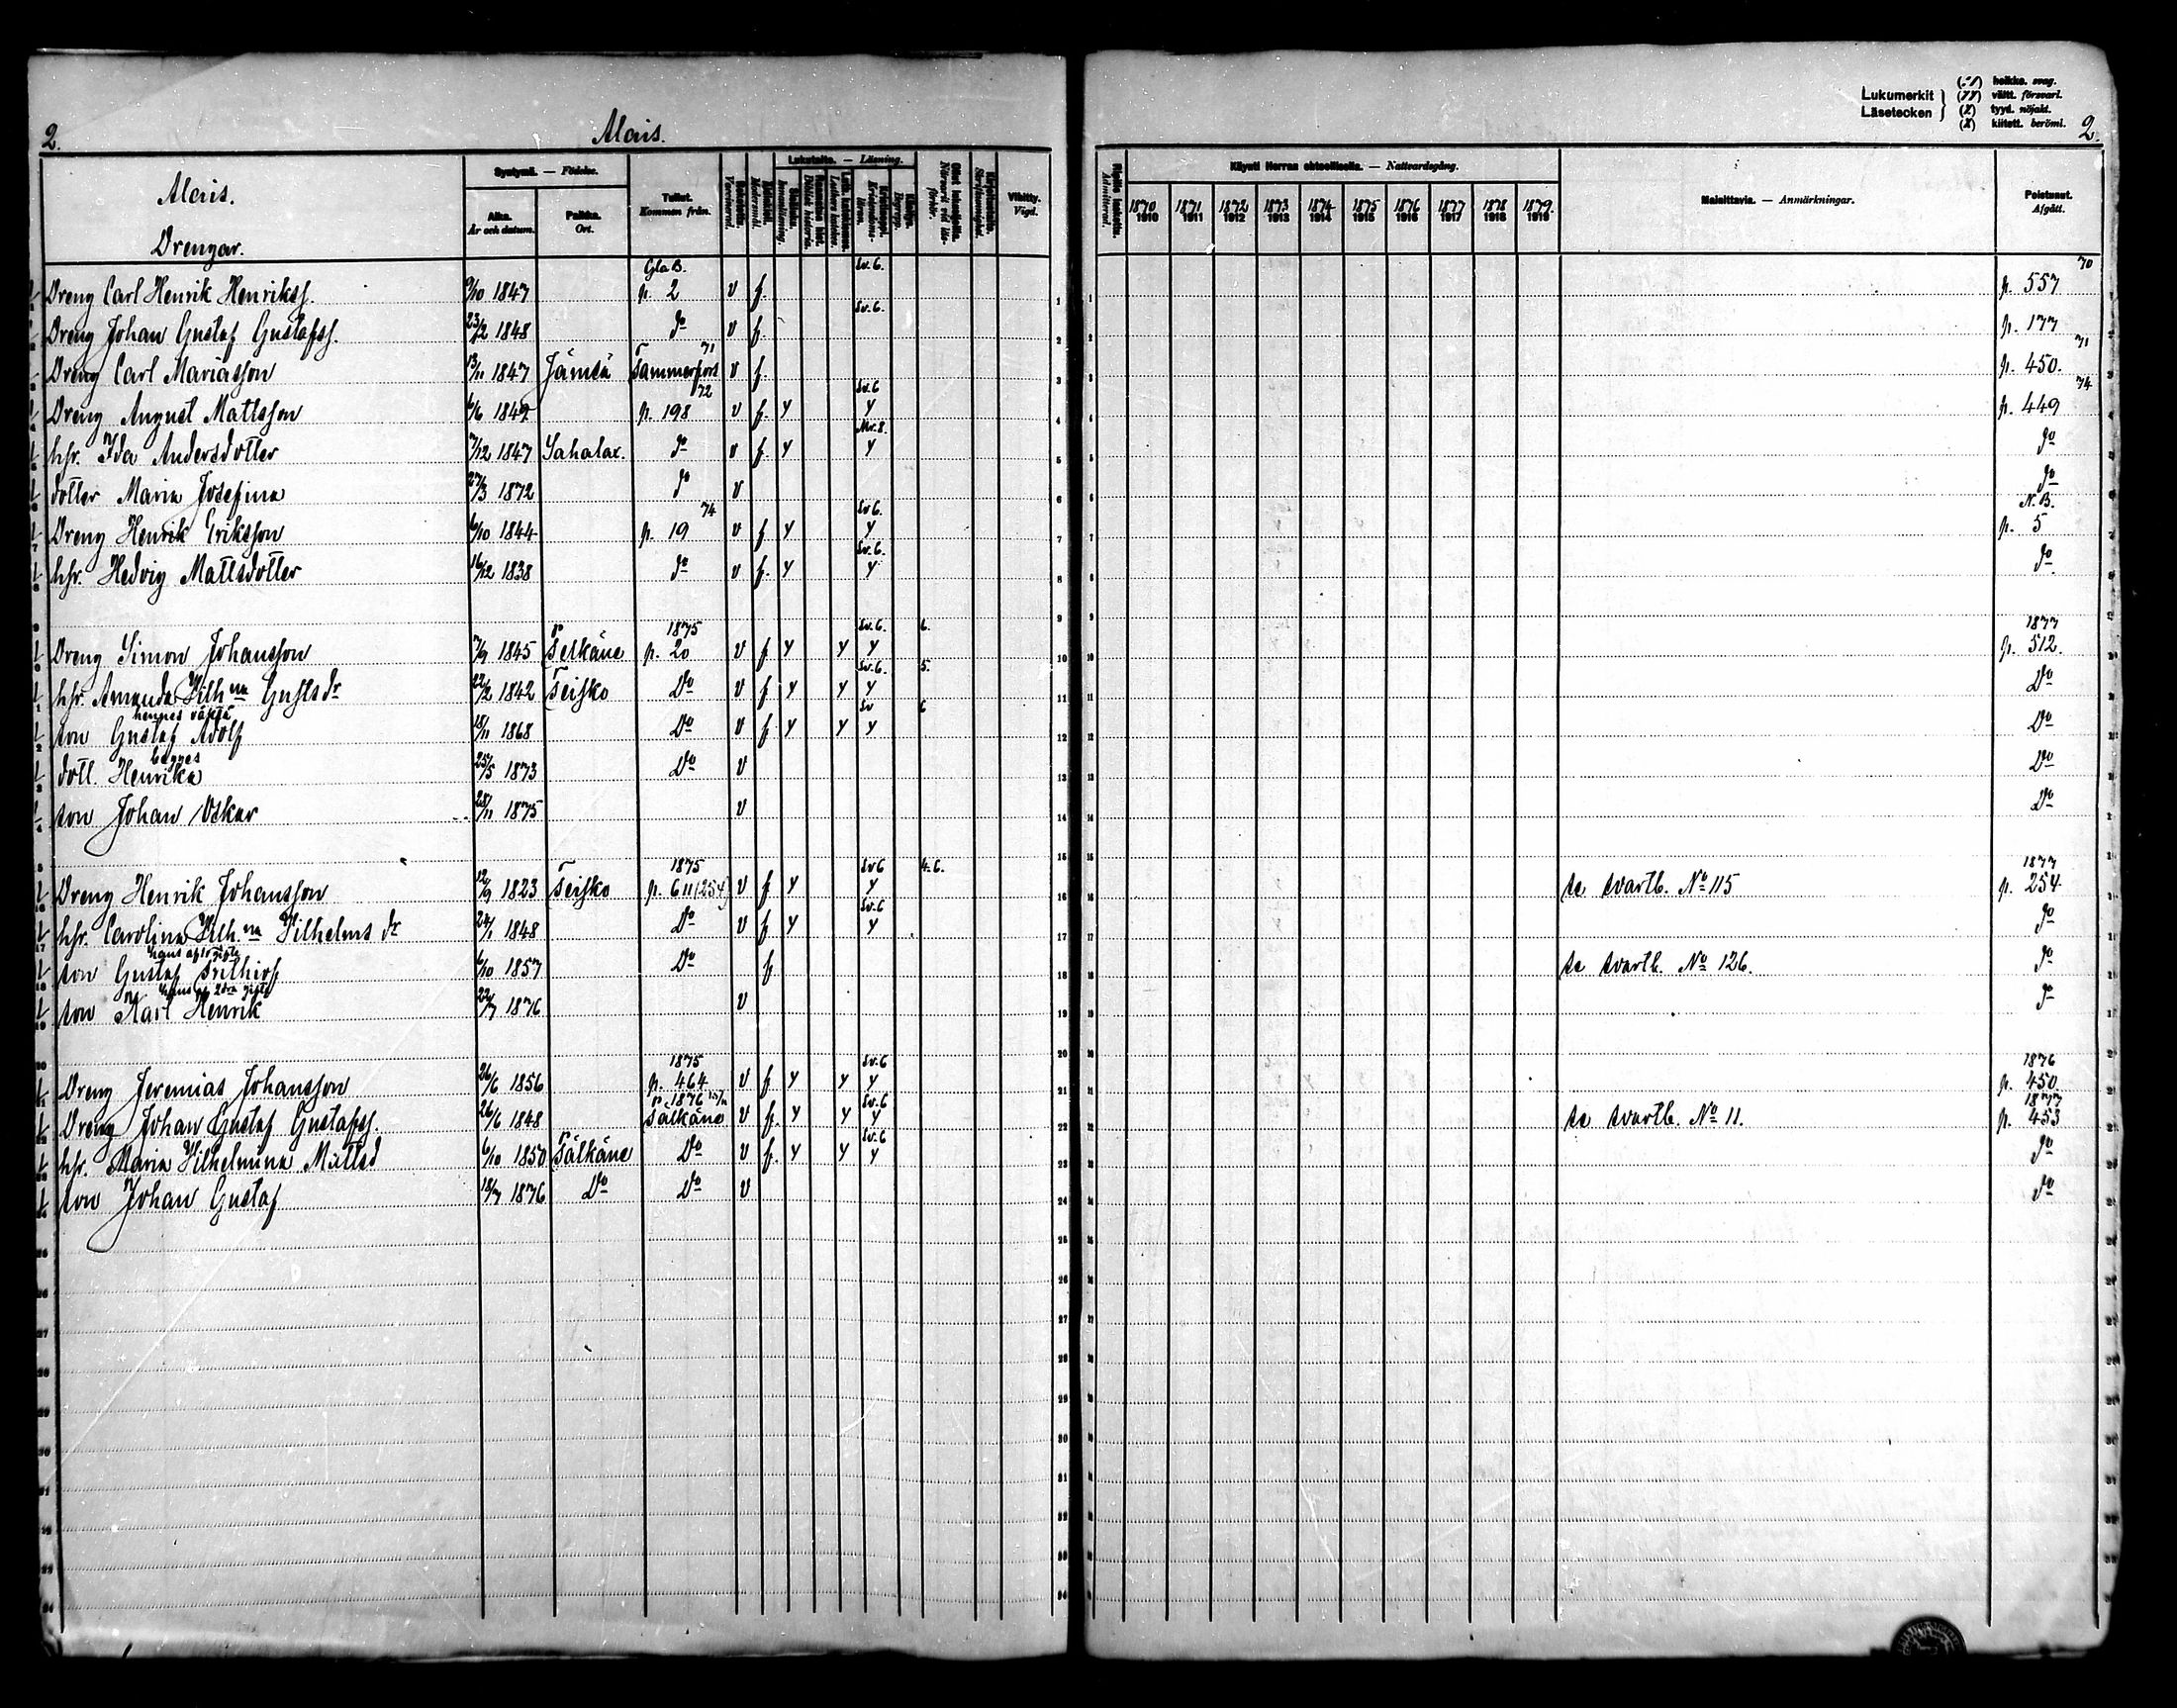 2.
Alais.
Alais.
Drengar.
Syntymä. — Födelse.
Aika. År och datum.
Paikka. Ort.
Tullut. Kommen från.
Lukutaito. — Läsning.
Vihitty. Vigd.
Gla B. Sv. 6.
Dreng Carl Henrik Henrikss. 9/10 1847 p. 2 v f. 1
Sv. 6.
Dreng Johan Gustaf Gustafss. 23/2 1848 do v f. 2
71
Dreng Carl Mariasson 13/11 1847 Jämsä Tammerfors v f 3
72 Sv. 6
Dreng August Mattsson 6/6 1849 p. 198 v f. y y 4
Nr. 8.
hſr. Ida Andersdotter 7/12 1847 Sahalax. do v f. y y 5
dotter Maria Josefina 27/3 1872 do v 6
74 Sv 6.
Dreng Henrik Eriksson 6/10 1844 p. 19 v f y y 7
Sv. 6.
hſr. Hedvig Mattsdotter 16/12 1838 do v f. y y 8
9
1875 Sv. 6. 6.
Dreng Simon Johansson 7/9 1845 Pelkäne p. 20 v f y y y 10
Sv. 6. 5.
hſr. Amanda Vilhna Gustsdr 22/2 1842 Teisko Do v f y y y 11
hennes oäkta Sv 6
son Gustaf Adolf 18/11 1868 Do v f. y y y 12
begges
dott. Henrika 25/5 1873 Do v 13
son Johan Oskar 28/11 1875 v 14
15
1875 Sv 6 4. 6.
Dreng Henrik Johansson 12/9 1823 Teisko p. 611 (254) v f y y 16
Sv. 6
hſr. Carolina Vilh.na Vilhelms dr 24/1 1848 Do v f. y y 17
son Gustaf Frithiof 6/10 1857 Do f 18
son Karl Henrik 22/7 1876 v 19
20
1875 Sv. 6
Dreng Jeremias Johansson 26/6 1856 p. 464 v f. y y y 21
1876 Sv. 6
Dreng Johan Gustaf Gustafss. 26/6 1848 Pälkäne v f. y y y 22
Sv. 6
hſr. Maria Vilhelmina Mattsd 6/10 1850 Pälkäne Do v f. y y y 23
son Johan Gustaf 18/7 1876 Do Do v 24
Lukumerkit
Läsetecken
heikko. svag.
vältt. försvarl.
tyyd. nöjakt.
kiitett. beröml.
2.
Käynti Herran ehtoollisella. — Nattvardsgång.
1870 1871 1872 1873 1874 1875 1876 1877 1878 1879.
1910 1911 1912 1913 1914 1915 1916 1917 1918 1919
Muistettavia. — Anmärkningar.
Poistunut. Afgått.
70
p. 557
p. 177
71
p. 450.
74
p. 449
do
do
N. B.
p. 5
do
1877
p. 512.
Do
Do
Do
Do
1877
se svartb. No 115 p. 254
do
se svartb. No 126. do
do
1876
p. 450
1877
se svartb. No 11. p. 453
do
do